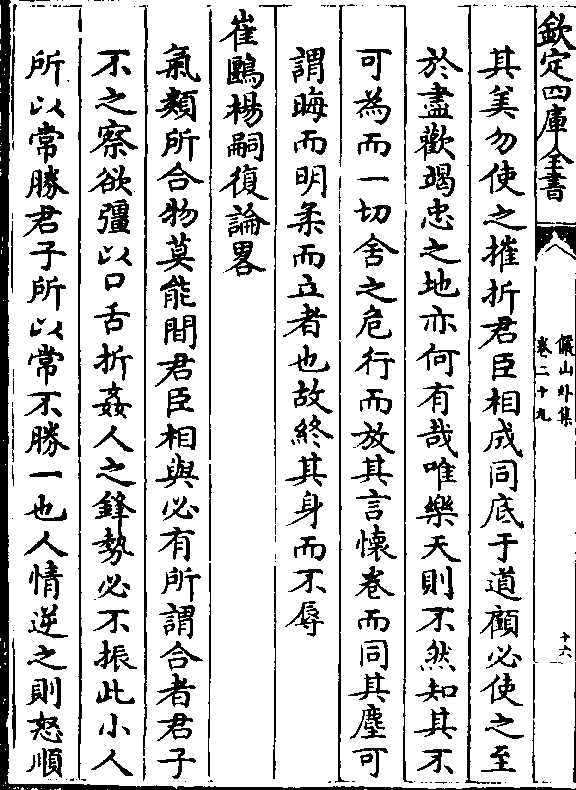 欽定四庫全書
儼山外集
卷二十九
十六
其美勿使之摧折君臣相成同底于道顧必使之至
於盡歡竭忠之地亦何有哉唯樂天則不然知其不
可為而一切舍之危行而放其言懷卷而同其塵可
謂晦而明柔而立者也故終其身而不辱
崔鷗楊嗣復論畧
氣類所合物莫能間君臣相與必有所謂合者君子
不之察欲彊以口舌折姦人之鋒勢必不振此小人
所以常勝君子所以常不勝一也人情逆之則怒順